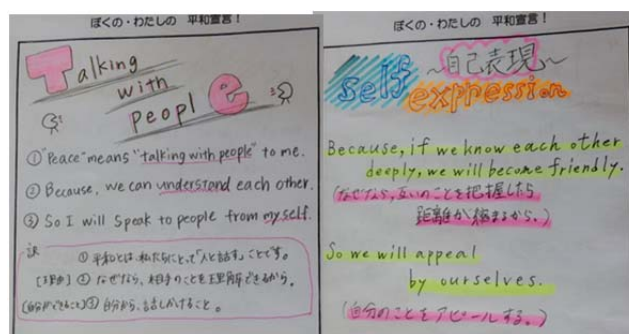 ぼくの・わたしの 平和宣言!
Talking
with
people
①"Peace" means "talking with people" to me.
②Because, we can understand each other.
③So I will speak to people from myself.
訳 ①平和とは、私たちにとって「人と話す」ことです。
②なぜなら、相手のことを理解できるから。
③自分から、話しかけること。
ぼくの・わたしの 平和宣言!
〜自己表現〜
self
expression
Because, if we know each other
deeply, we will become friendly.
(なぜなら、互いのことを把握したら
距離が縮まるから。)
So we will appeal
by ourselves.
(自分のことをアピールする。)